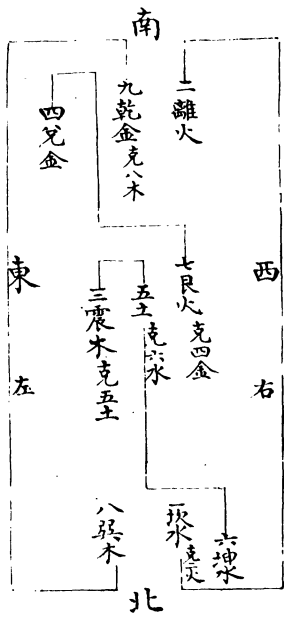 南
二離火
九乾金克八木
四兌金
西
七艮火克四金
五土克六水
三震木克五土
東
右
左
六坤水
一坎水克二火
八巽木
北